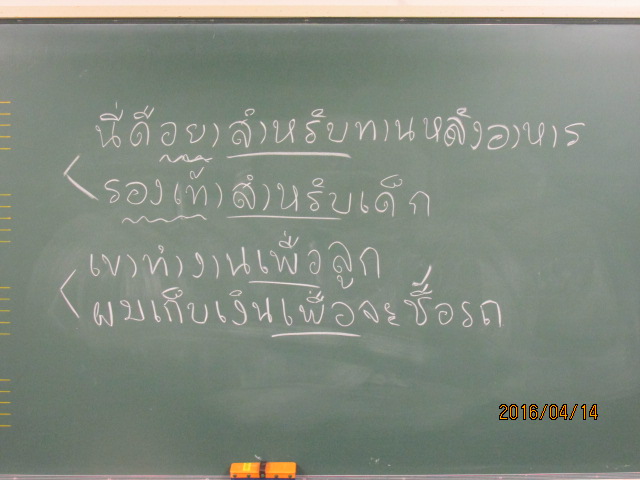 นี่คือยาสำหรับทานหลังอาหาร
รองเท้าสำหรับเด็ก
เขาทำงานเพื่อลูก
ผมเก็บเงินเพื่อจะซื้อรถ
2016/04/14